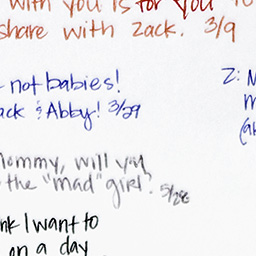 with you is for you
share with Zack. 3/9
- not babies!
ack & Abby! 3/29
Mommy, will you
the "mad" girl? 5/28
nk I want to
on a day
Z: